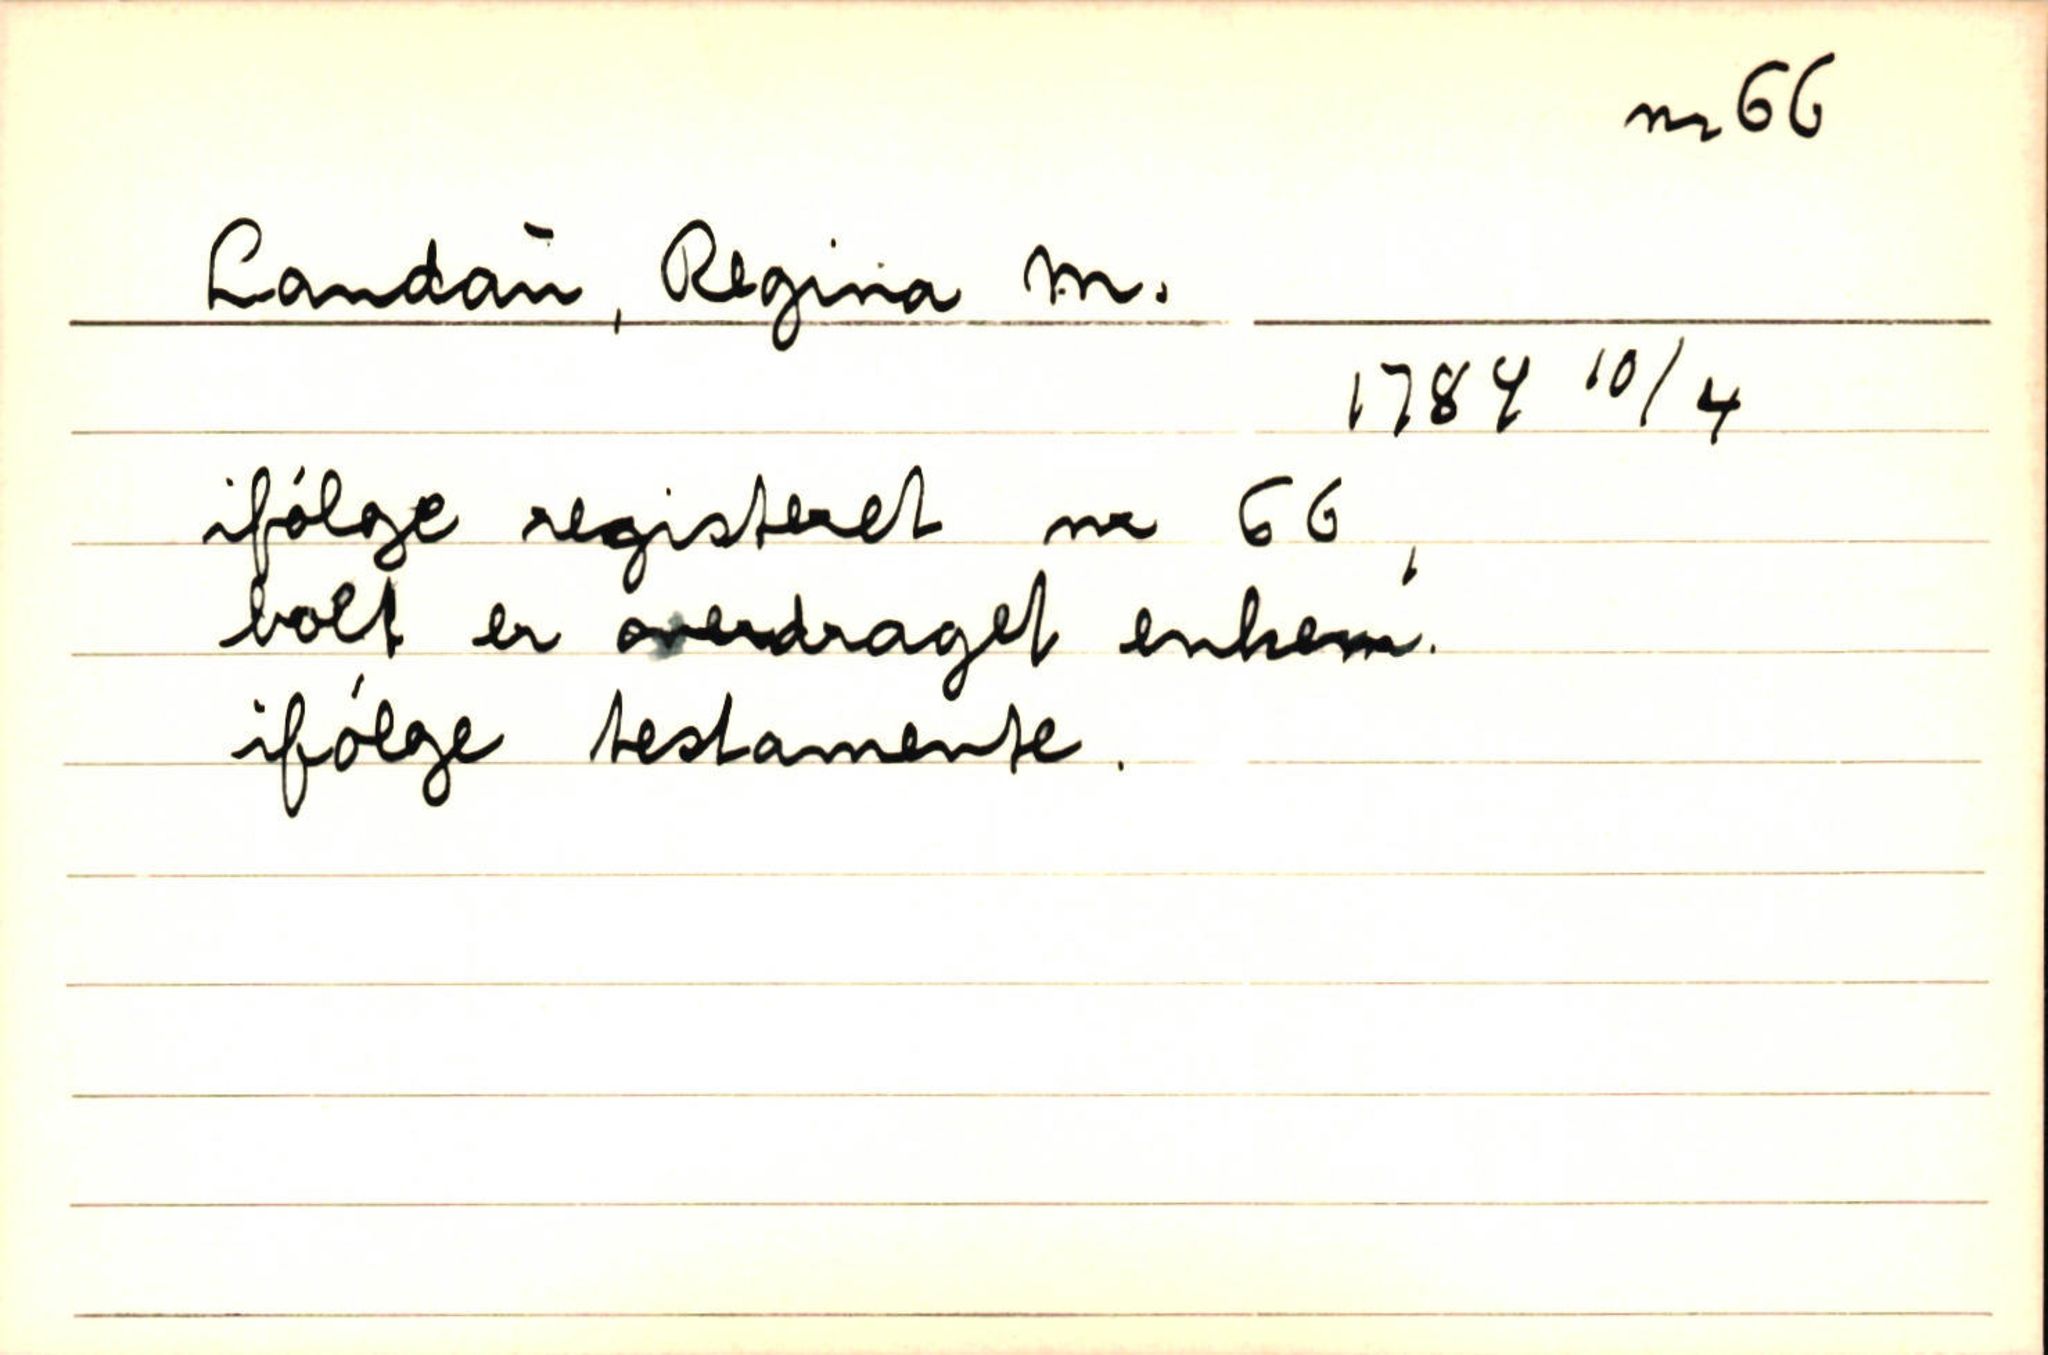 nr 66
Landaū, Regina M.
1784 10/4
ifólge registeret nr 66,
bolt er overdraget enkem.
ifólge testamente.